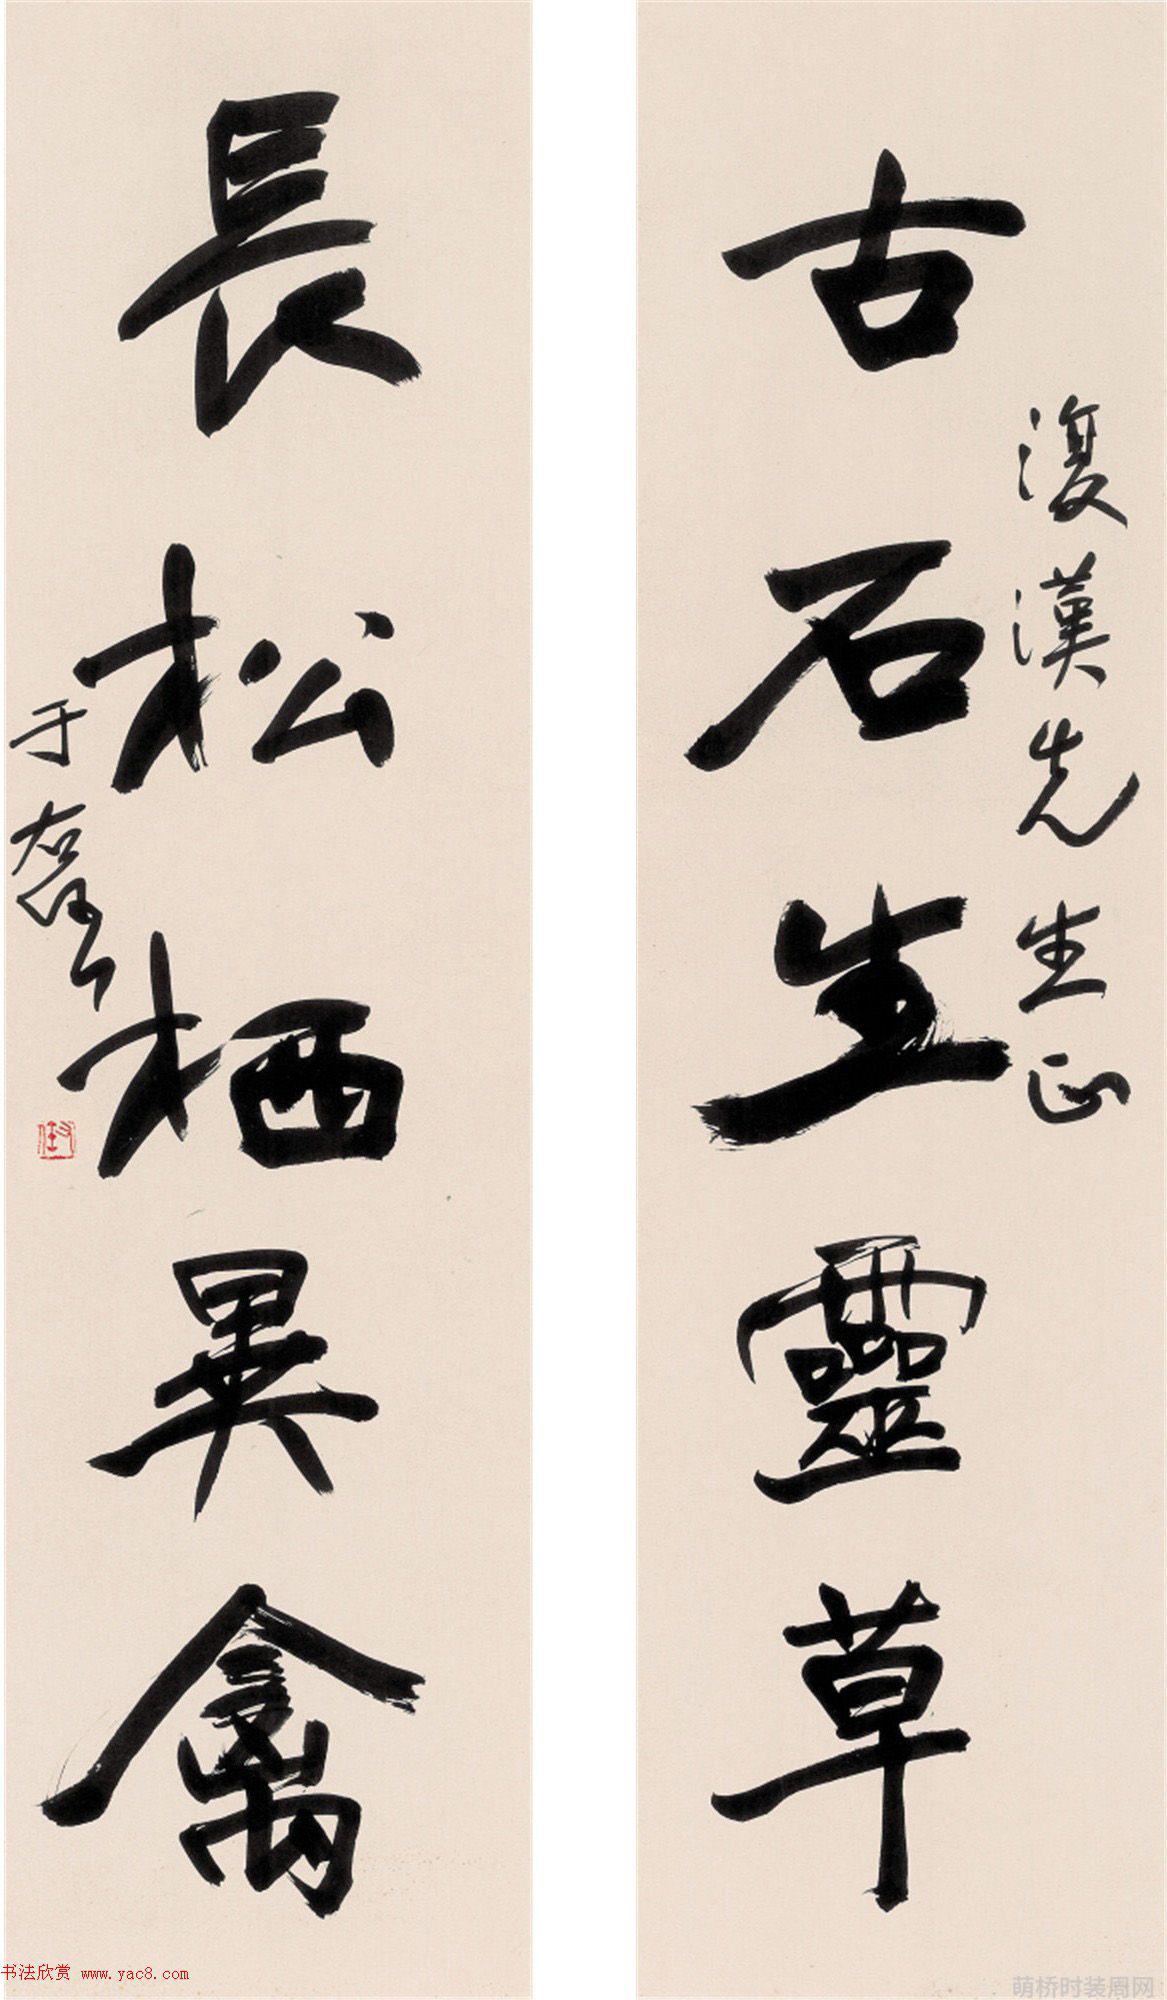 古石生靈草
復漢先生正
長松栖異禽
于右任
右任
书法欣赏 www.yac8.com
萌桥时装周网